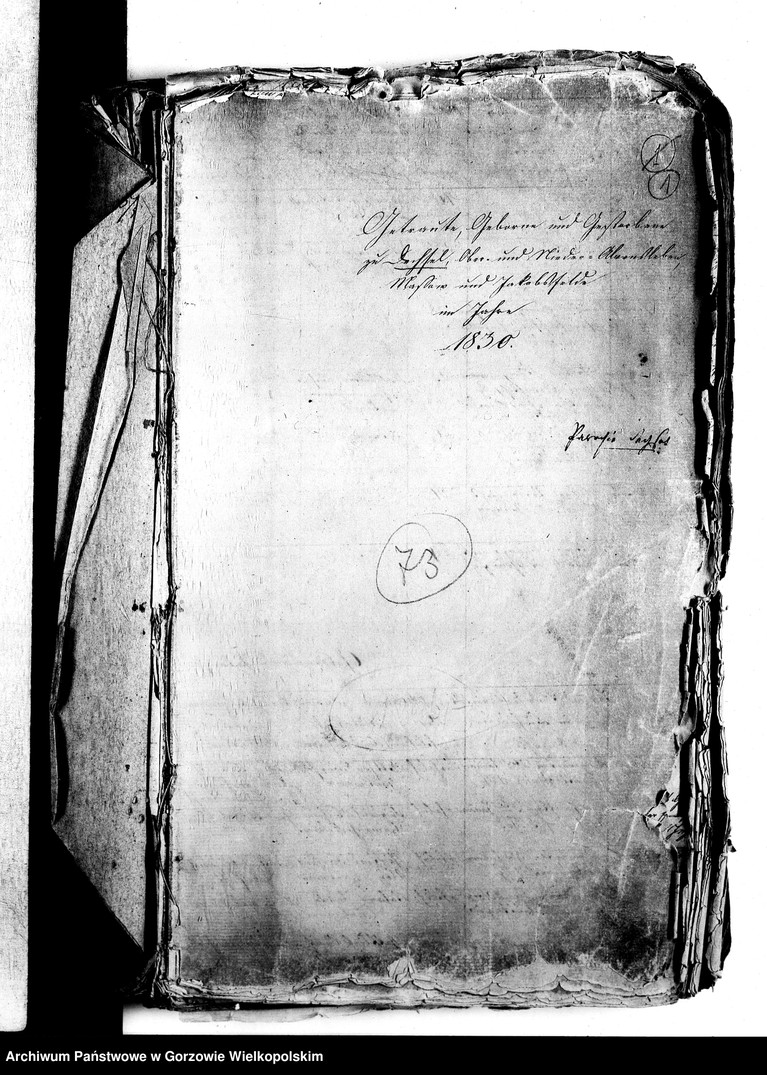 1
1
Getraute, Geborne und Gestorbene
zu Dechsel, Ober- und Nieder-Alvensleben
Massow und Jakobsfelde
im Jahre
1830.
Parochie Dechsel
73
Archiwum Państwowe w Gorzowie Wielkopolskim